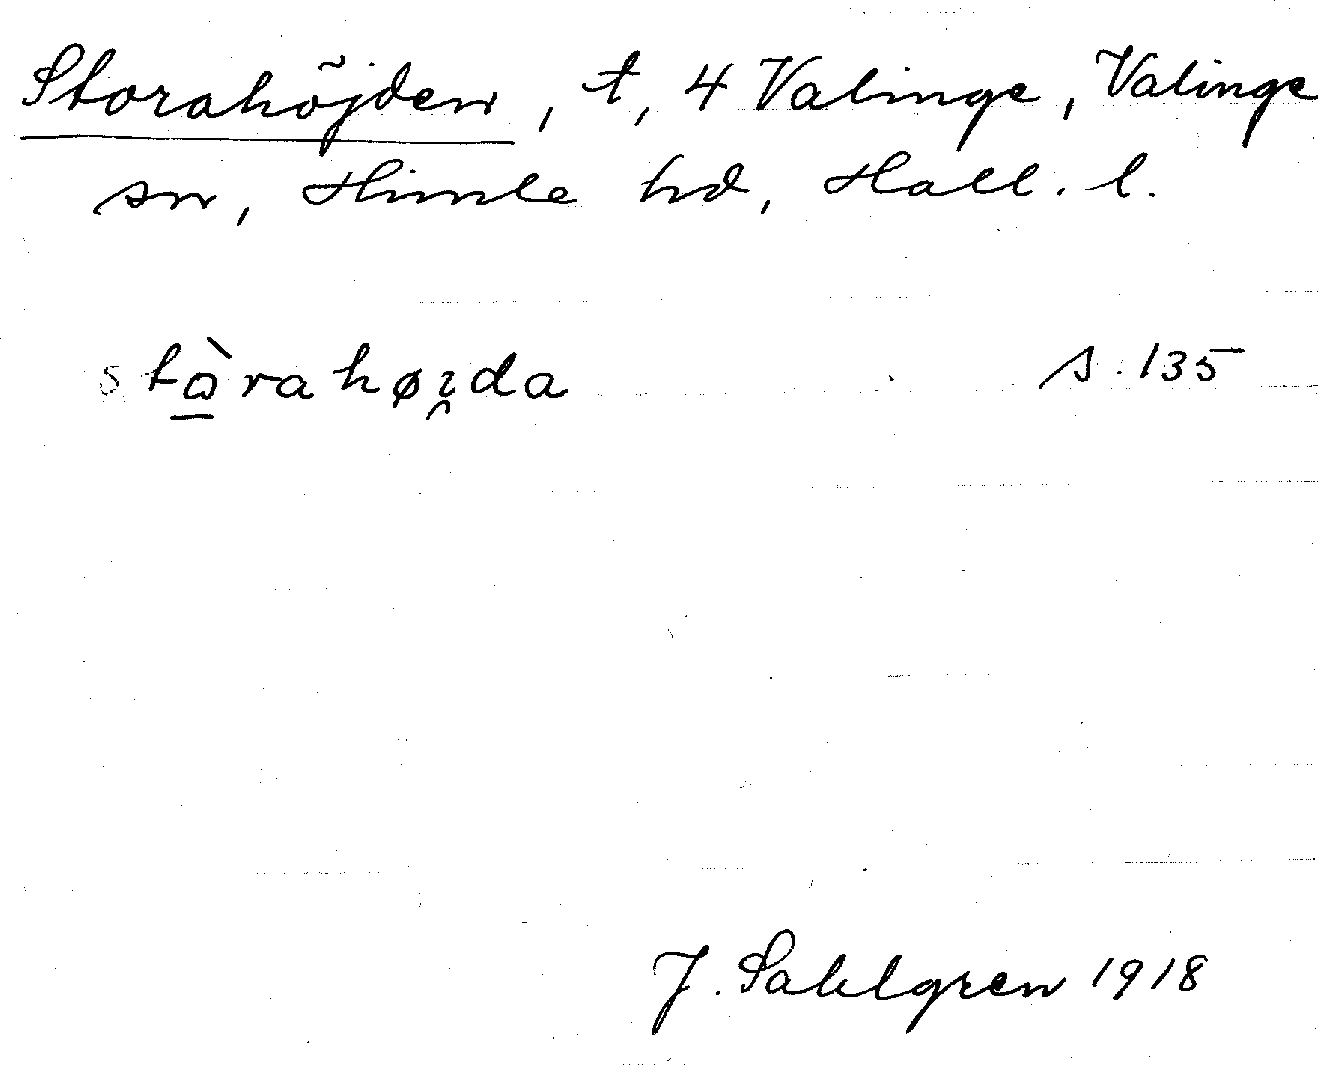 Storahöjden, t, 4 Valinge, Valinge
sn, Himle hd, Hall. l.
stò̠rahøi̯da s. 135
J. Sahlgren 1918